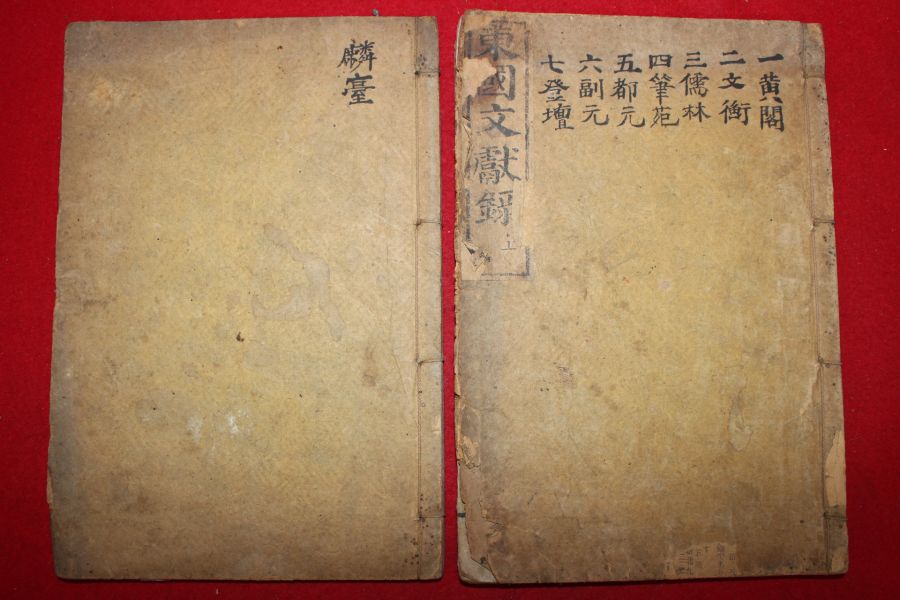 一黄閣
二文衡
三儒林
四筆苑
五都元
六副元
七登壇
東國文獻錄 上
麟臺